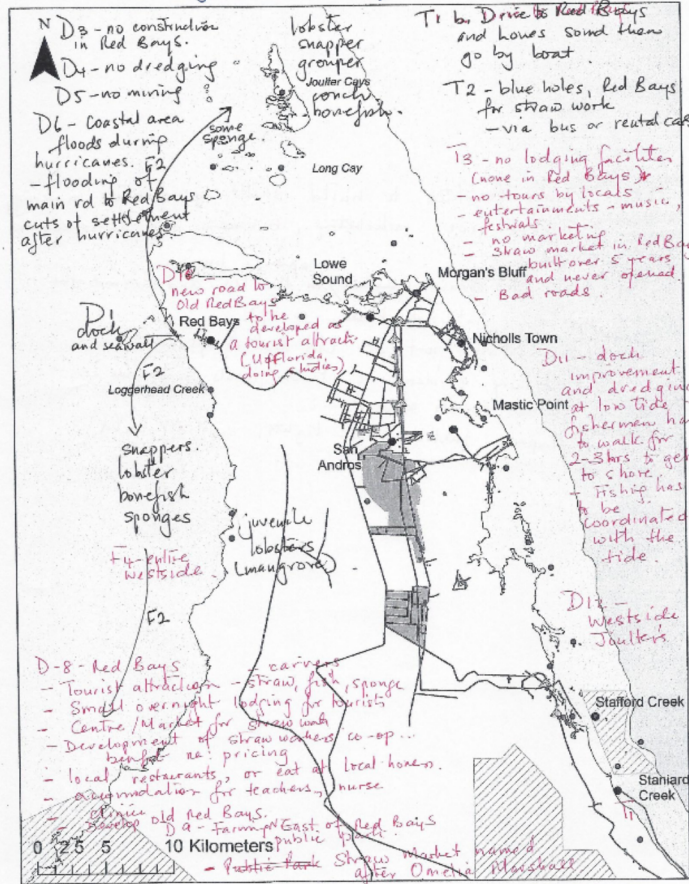 N
D3 - no construction
in Red Bays.
D4 - no dredging
D5 - no mining
D6 - Coastal area
floods during
hurricanes. F2
- flooding of
main rd to Red Bays
cuts of settlement
after hurricanes
some
sponge
lobster
snapper
grouper
Joulter Cays
conch
bonefish
Long Cay
T1 Drive to Red Bays
and hones sound then
go by boat.
T2 - blue holes, Red Bays
for straw work
- via bus or rental cars
T3 - no lodging facilites
(none in Red Bays)
- no tours by locals
- entertainments - music,
festivals
- no marketing
- Straw market in Red Bays
built over 5 years
and never opened.
- Bad roads.
Lowe
Sound
Morgan's Bluff
D10
new road to
Old Red Bays
to be
developed as
a tourist attracti
(U of florida
doing studies)
Dock
and seawall
Red Bays
Nicholls Town
F2
Loggerhead Creek
Mastic Point
San
Andros
D11 - dock
improvement
and dredging
at low tide
fishermen ha
to walk for
2-3hrs to get
to shore
- Fishing has
to be
coordinated
with the
tide.
snappers.
lobster
bonefish
sponges
juvenile
lobsters
(mangrove)
F4 - entire
westside
F2
D12 -
Westside
Joulters
D-8 - Red Bays - carvers
- Tourist attraction - straw, fish, sponge
- Small overnight lodging for tourists
- Centre/Market for straw work
- Development of straw workers co-op
benefit pricing
- local restaurants, or eat at local homes.
- accomodation for teachers, nurse
- clinic
- Develop old Red Bays.
D9 - Farming East of Red Bays
public
- Public Park Straw market named
after Omelia Marshall
Stafford Creek
Staniard
Creek
T1
0 2.5 5 10 Kilometers